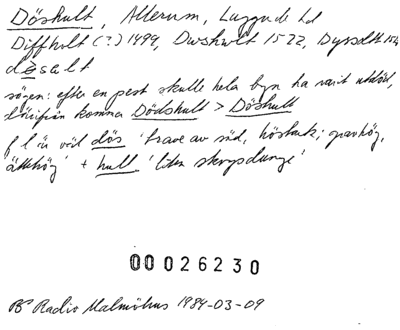 Döshult, Allerum, Luggude hd
Diffholt (?) 1499, Dwshwlt 1522, Dyssdlt 15
døsalt
sägen: efter en pest skulle hela byn ha varit utdöd,
därifrån komma Dödshult > Döshult
f l är väl dös 'trave av säd, höstack; gravhög,
ättehög' + hult 'liten skogsdunge'
00026230
BP Radio Malmöhus 1984-03-09